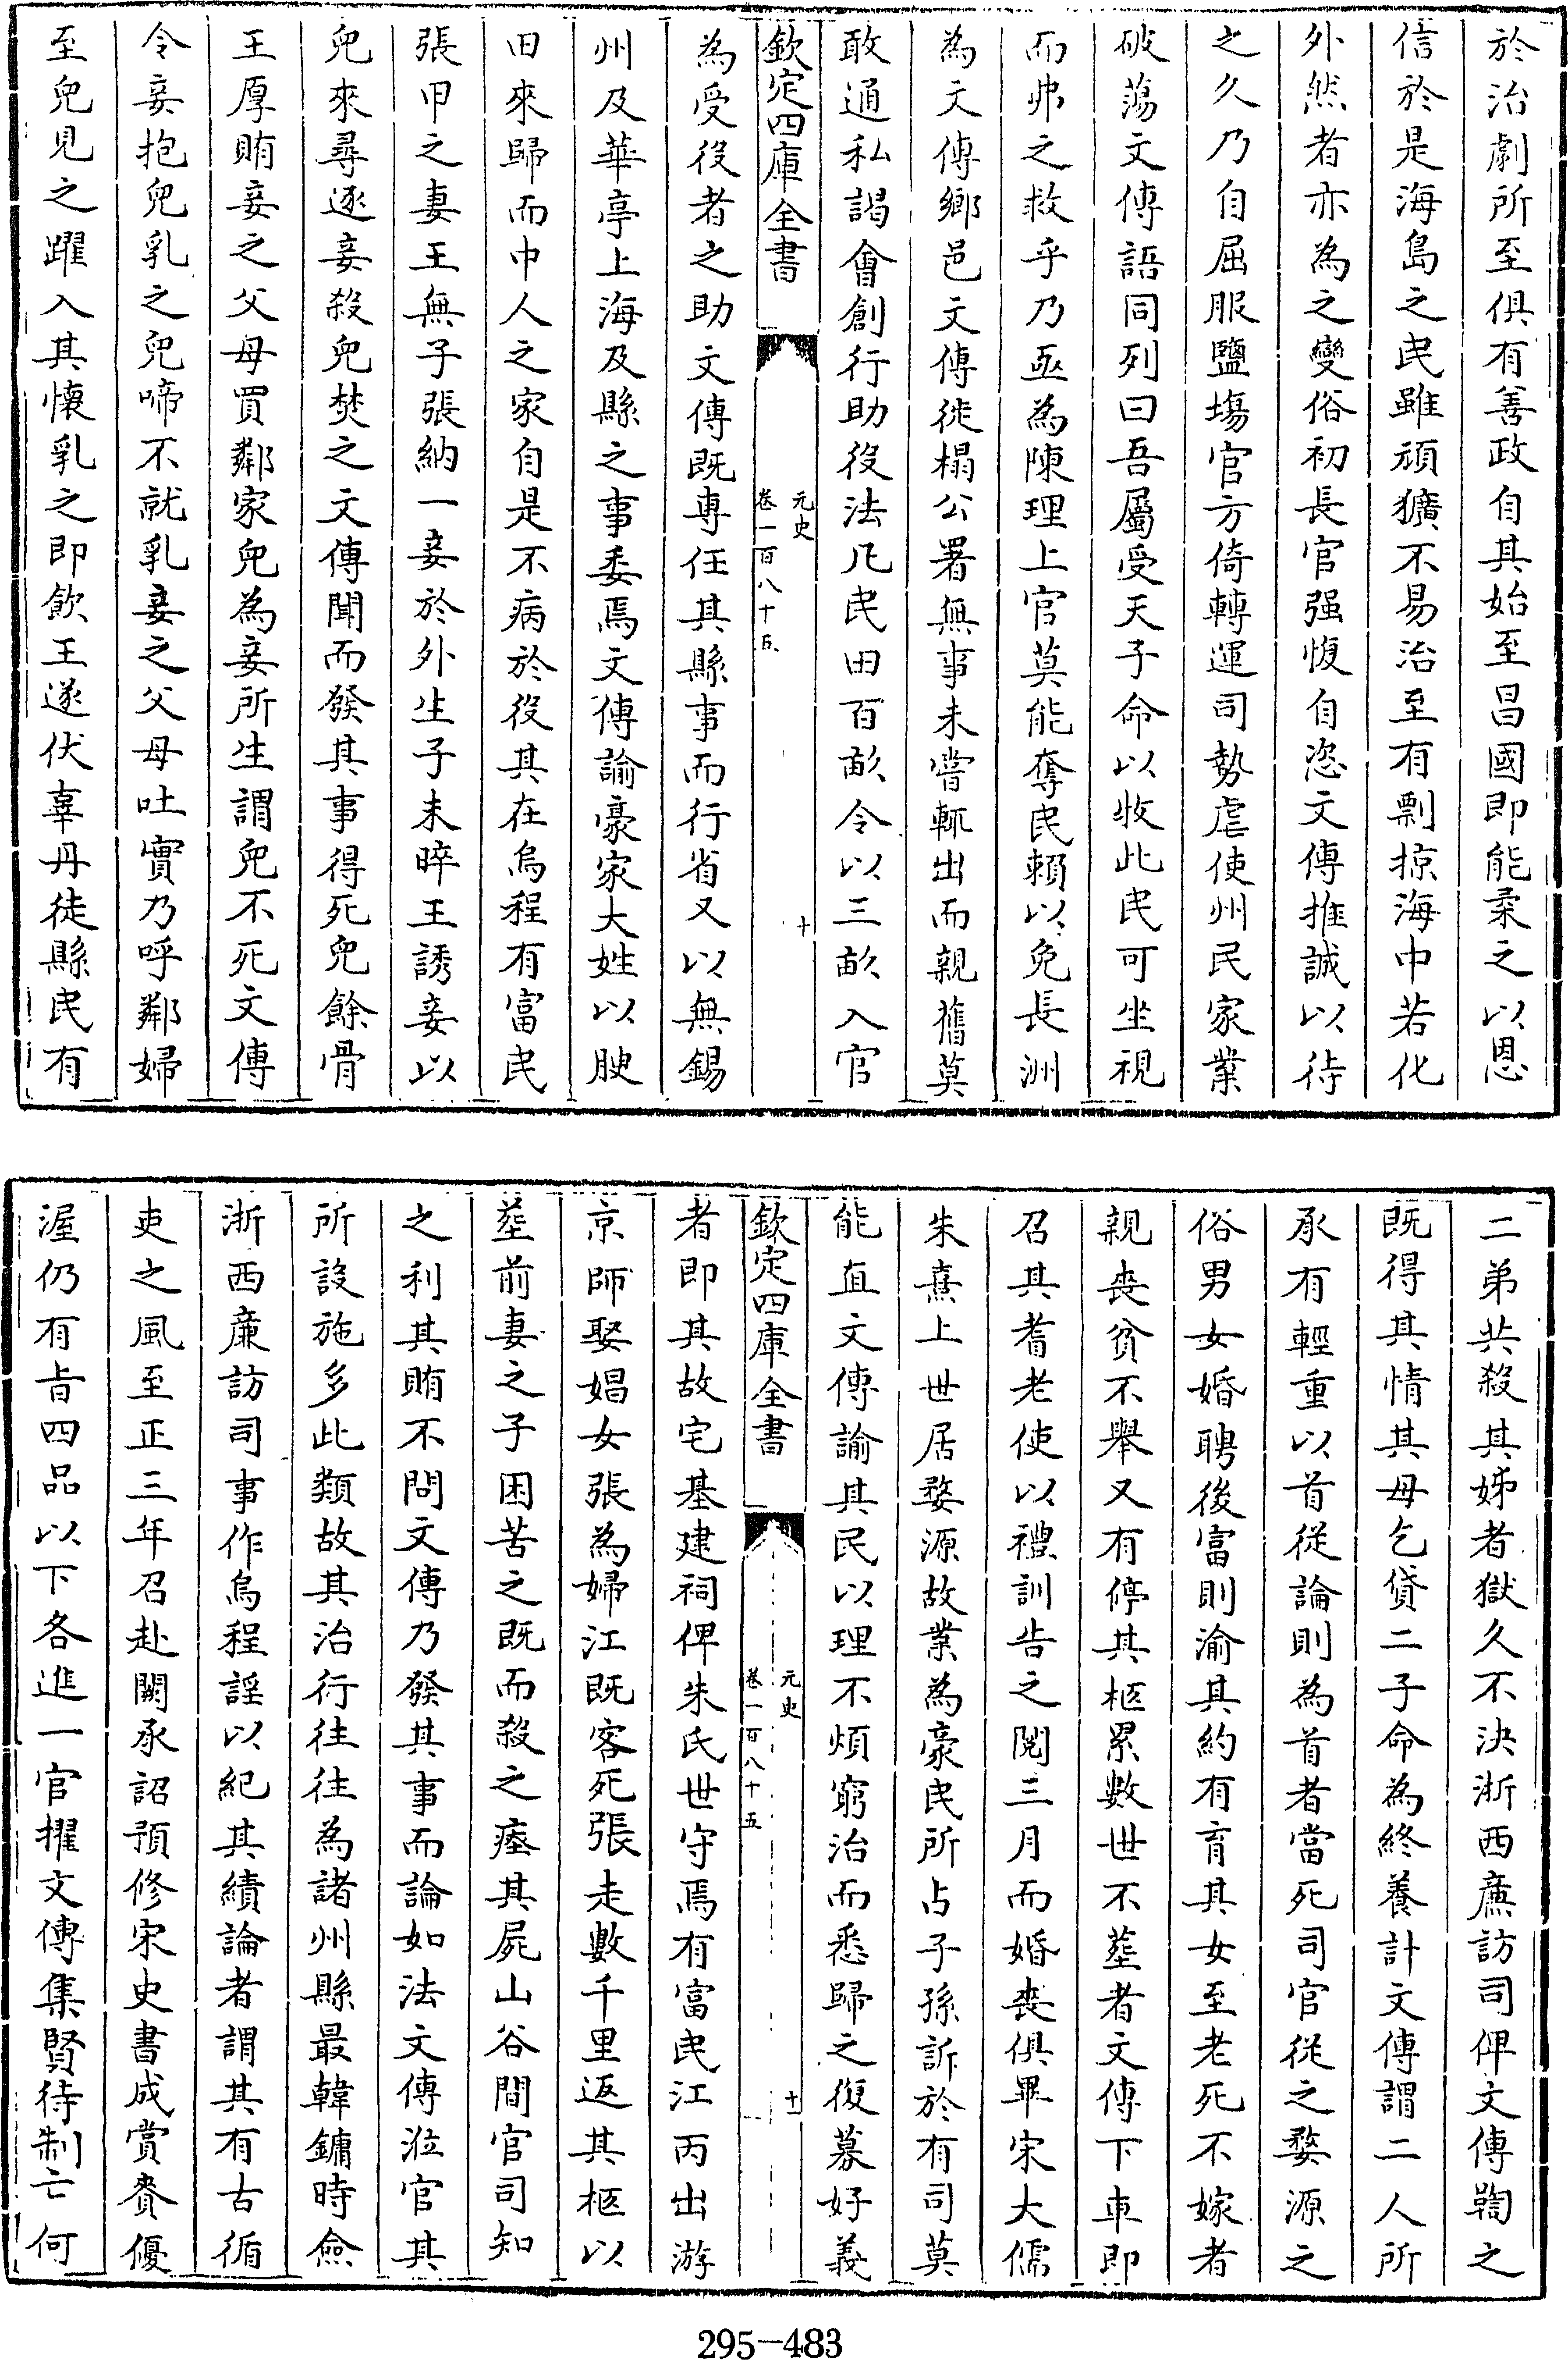 於治劇所至俱有善政自其始至昌國即能柔之以恩
信於是海島之民雖頑獷不易治至有剽掠海中若化
外然者亦為之變俗初長官强愎自恣文傳推誠以待
之久乃自屈服鹽塲官方倚轉運司勢虐使州民家業
破蕩文傳語同列曰吾屬受天子命以牧此民可坐視
而弗之救乎乃亟為陳理上官莫能奪民賴以免長洲
為文傳鄉邑文傳徙榻公署無事未嘗輒出而親舊莫
敢通私謁會創行助役法凡民田百畝令以三畝入官
欽定四庫全書
元史
卷一百八十五
十
為受役者之助文傳既專任其縣事而行省又以無錫
州及華亭上海及縣之事委焉文傳諭豪家大姓以腴
田來歸而中人之家自是不病於役其在烏程有富民
張甲之妻王無子張納一妾於外生子未晬王誘妾以
兒來尋逐妾殺兒焚之文傳聞而發其事得死兒餘骨
王厚賄妾之父母買鄰家兒為妾所生謂兒不死文傳
令妾抱兒乳之兒啼不就乳妾之父母吐實乃呼鄰婦
至兒見之躍入其懷乳之即飲王遂伏辜丹徒縣民有
二弟共殺其姊者獄久不決浙西廉訪司俾文傳鞫之
既得其情其母乞貸二子命為終養計文傳謂二人所
承有輕重以首從論則為首者當死司官從之婺源之
俗男女婚聘後富則渝其約有育其女至老死不嫁者
親喪貧不舉又有停其柩累數世不葬者文傳下車即
召其耆老使以禮訓告之閲三月而婚喪俱畢宋大儒
朱熹上世居婺源故業為豪民所占子孫訴於有司莫
能直文傳諭其民以理不煩窮治而悉歸之復募好義
欽定四庫全書
元史
卷一百八十五
十一
者即其故宅基建祠俾朱氏世守焉有富民江丙出游
京師娶娼女張為婦江既客死張走數千里返其柩以
葬前妻之子困苦之既而殺之瘞其屍山谷間官司知
之利其賄不問文傳乃發其事而論如法文傳涖官其
所設施多此類故其治行往往為諸州縣最韓鏞時僉
浙西廉訪司事作烏程謡以紀其績論者謂其有古循
吏之風至正三年召赴闕承詔預修宋史書成賞賚優
渥仍有㫖四品以下各進一官擢文傳集賢待制亡何
295-483